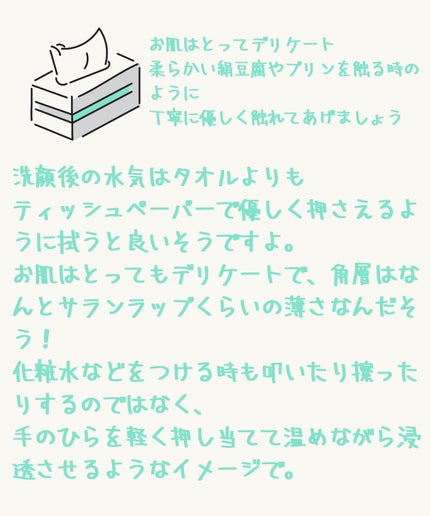 お肌はとってデリケート
柔らかい絹豆腐やプリンを触る時の
ように
丁寧に優しく触れてあげましょう
洗顔後の水気はタオルよりも
ティッシュペーパーで優しく押さえるよ
うに拭うと良いそうですよ。
お肌はとってもデリケートで、角層はな
んとサランラップくらいの薄さなんだそ
う！
化粧水などをつける時も叩いたり擦った
りするのではなく、
手のひらを軽く押し当てて温めながら浸
透させるようなイメージで。